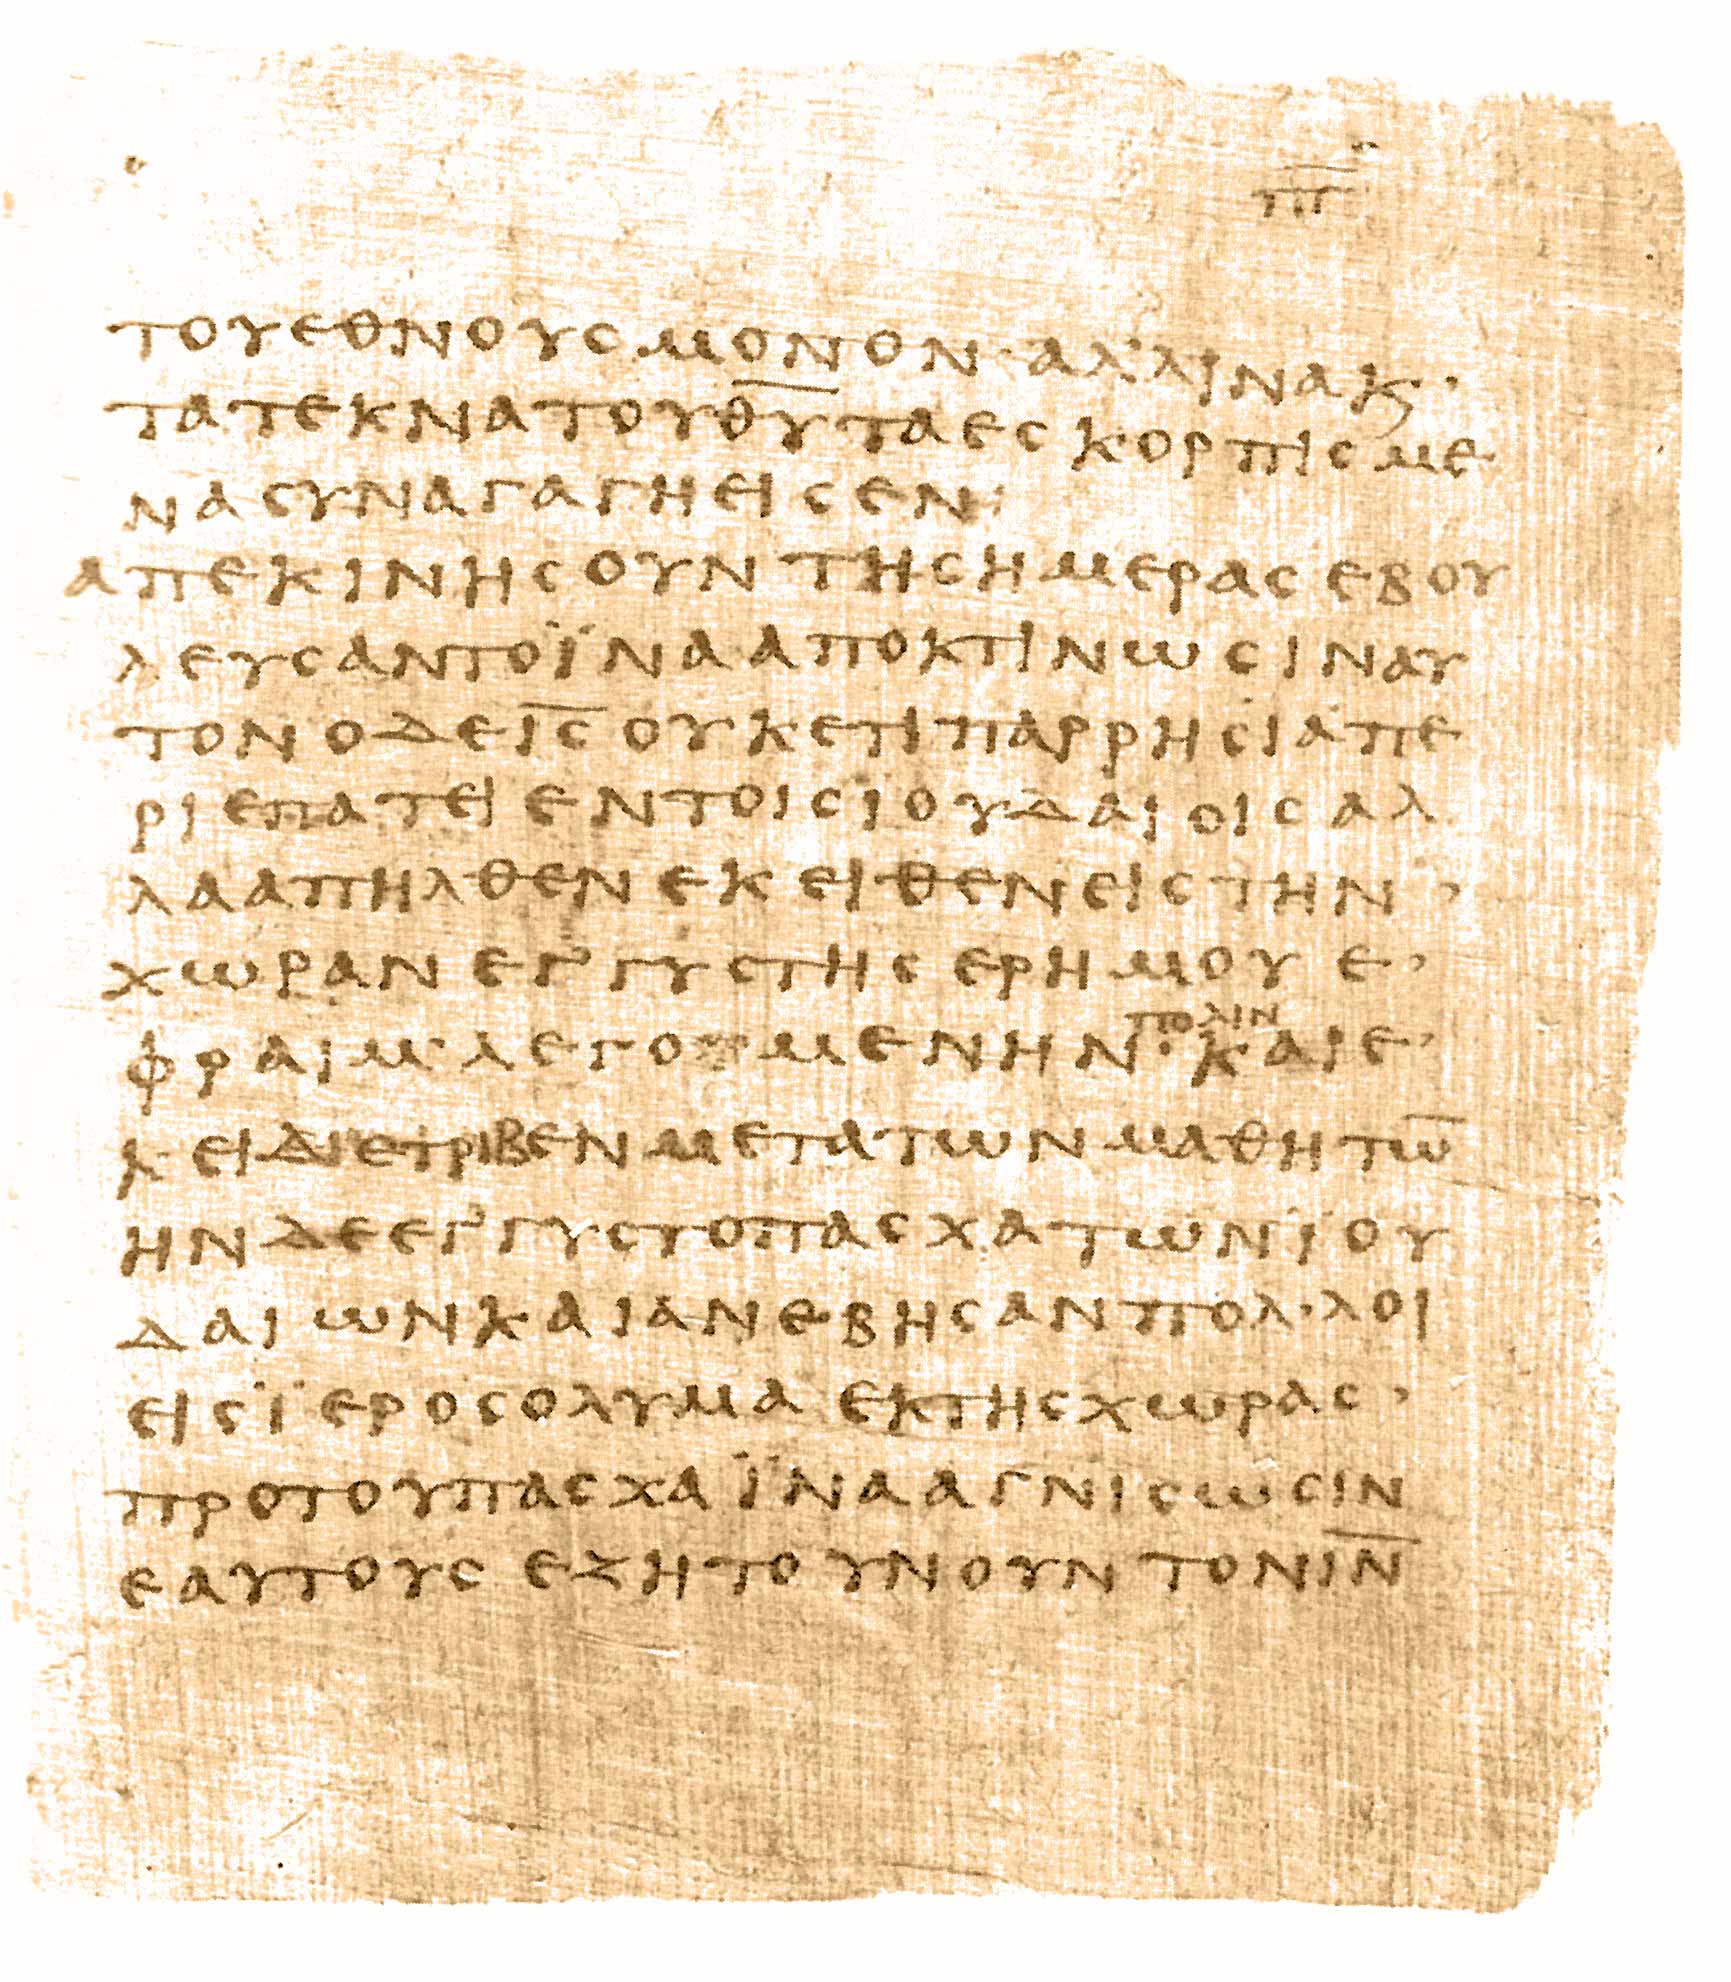 π̅
τουεθνουςμονον·αλ’λινακ·
τατεκνατουθ̅υ̅ταεςκορπιςμε
ναςυναγαγηειςεν:
απεκινηςουντηςημεραςεβου
λευςαντοϊνααποκτινωςιναυ
τονοδει̅ς̅ουκετιπαρρηςιαπε
ριεπατειεντοιςϊουδαιοιςαλ
λααπηλθενεκειθενειςτην·
χωρανεγ’γυςτηςερημουε·
φραιμ·λεγομενην·καιε·
πολιν
κειδιετριβενμετα·τωνμαθητω̅
ηνδεεγ’γυςτοπαςχατωνϊου
δαιωνκαιανεβηςανπολ·λοι
ειςϊεροςολυμαεκτηςχωρας·
προτουπαςχαϊνααγνιςωςιν
εαυτουςεζητουνουντονι̅ν̅